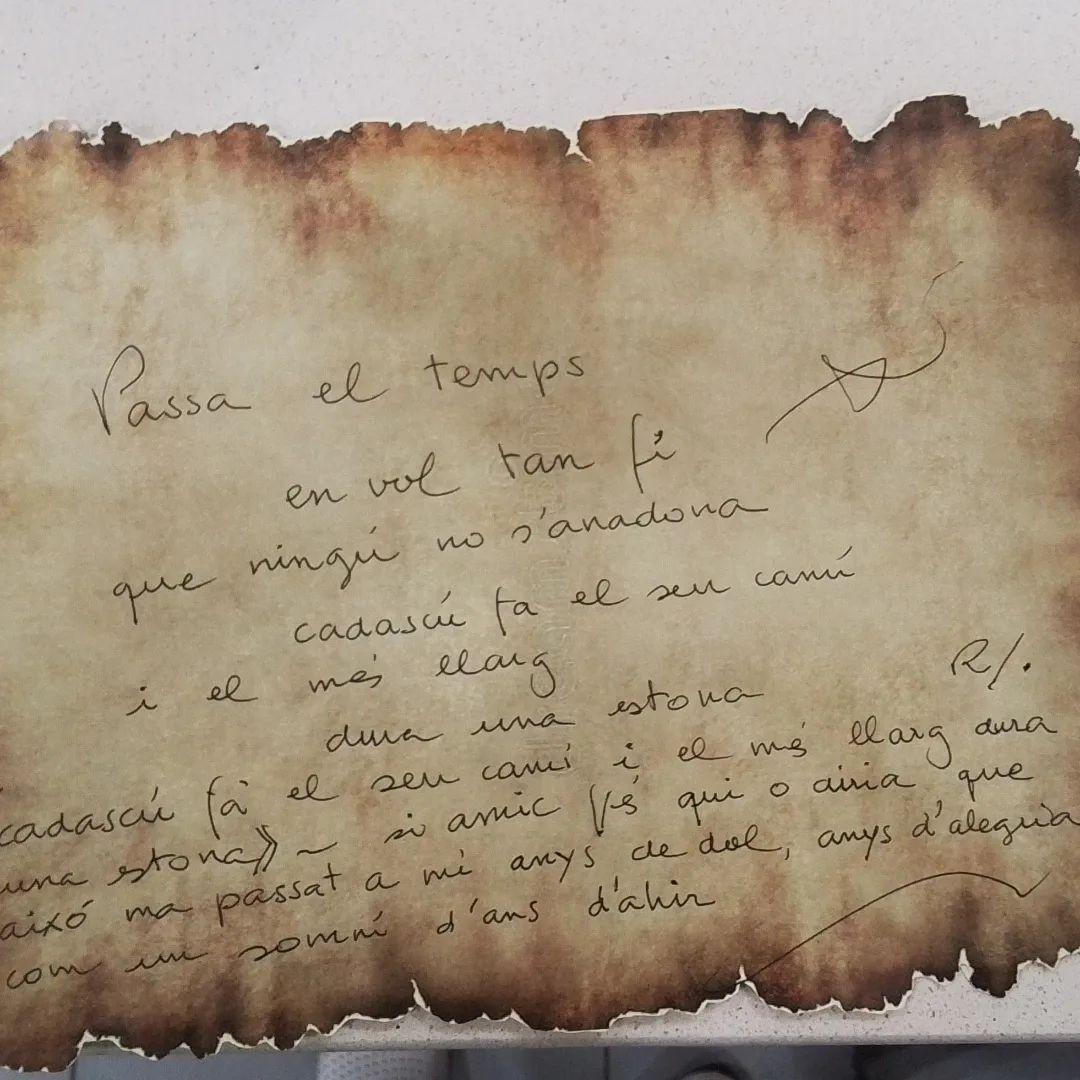 Passa el temps
en vol tan fi
que ningú no s'anadona
cadascú fa el seu camí
i el més llarg
dura una estona
R/.
cadascú fà el seu camí i el més llarg dura
una estona》~ si amic qui o diria que
aixó ma passat a mi anys de dol, anys d'alegria
com un somni d'ans d'ahir